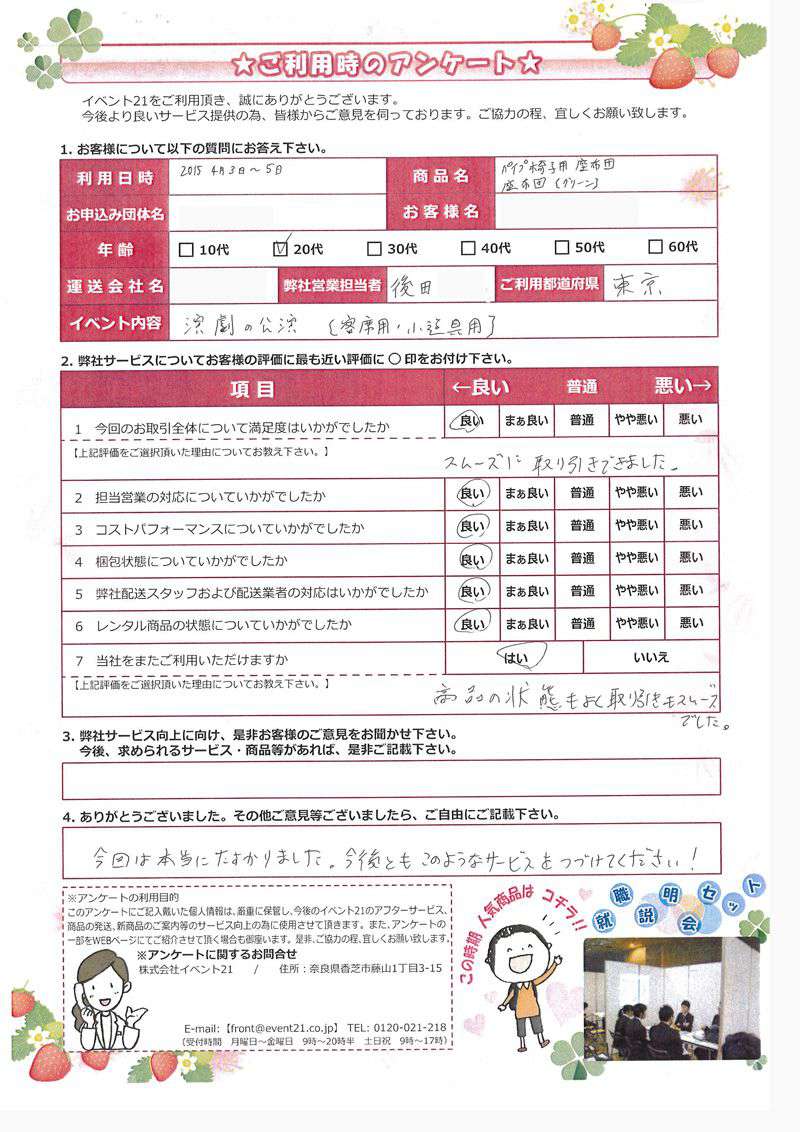 ★ご利用時のアンケート★
イベント21をご利用頂き、誠にありがとうございます。
今後より良いサービス提供の為、皆様からご意見を伺っております。ご協力の程、宜しくお願い致します。
1. お客様について以下の質問にお答え下さい。
利用日時 2015 4月3日～5日 商品名 パイプ椅子用 座布団
座布団(グリーン)
お申込み団体名 お客様名
年齢 □10代 ☑20代 □30代 □40代 □50代 □60代
運送会社名 弊社営業担当者 後田 ご利用都道府県 東京
イベント内容 演劇の公演 (客席用・小道具用)
2. 弊社サービスについてお客様の評価に最も近い評価に ○ 印をお付け下さい。
項目 ←良い 普通 悪い→
1 今回のお取引全体について満足度はいかがでしたか 良い まぁ良い 普通 やや悪い 悪い
【上記評価をご選択頂いた理由についてお教え下さい。】
スムーズに取り引きできました。
2 担当営業の対応についていかがでしたか 良い まぁ良い 普通 やや悪い 悪い
3 コストパフォーマンスについていかがでしたか 良い まぁ良い 普通 やや悪い 悪い
4 梱包状態についていかがでしたか 良い まぁ良い 普通 やや悪い 悪い
5 弊社配送スタッフおよび配送業者の対応はいかがでしたか 良い まぁ良い 普通 やや悪い 悪い
6 レンタル商品の状態についていかがでしたか 良い まぁ良い 普通 やや悪い 悪い
7 当社をまたご利用いただけますか はい いいえ
【上記評価をご選択頂いた理由についてお教え下さい。】
商品の状態もよく取り引きもスムーズ
でした。
3. 弊社サービス向上に向け、是非お客様のご意見をお聞かせ下さい。
今後、求められるサービス・商品等があれば、是非ご記載下さい。
4. ありがとうございました。その他ご意見等ございましたら、ご自由にご記載下さい。
今回は本当にたすかりました。今後ともこのようなサービスをつづけてください！
※アンケートの利用目的
このアンケートにご記入戴いた個人情報は、厳重に保管し、今後のイベント21のアフターサービス、
商品の発送、新商品のご案内等のサービス向上の為に使用させて頂きます。また、アンケートの
一部をWEBページにてご紹介させて頂く場合も御座います。是非、ご協力の程、宜しくお願い致します。
※アンケートに関するお問合せ
株式会社イベント21 / 住所：奈良県香芝市藤山1丁目3-15
E-mail:【front@event21.co.jp】 TEL: 0120-021-218
(受付時間 月曜日～金曜日 9時～20時半 土日祝 9時～17時)
この時期 人気商品は コチラ!!
就職説明会セット